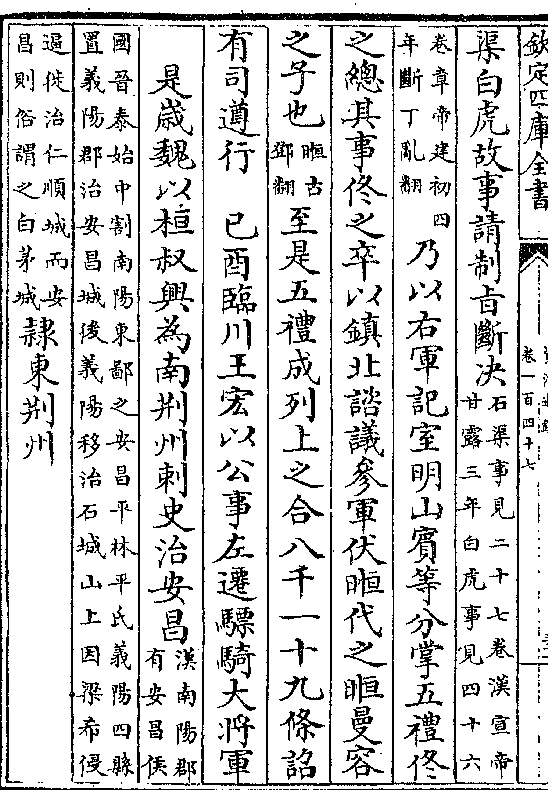 欽定四庫全書
卷一百四十七
渠白虎故事請制旨斷決石渠事見二十七卷漢宣帝甘露三年白虎事見四十六
卷章帝建初四年斷丁亂翻乃以右軍記室明山賓等分掌五禮佟
之總其事佟之卒以鎮北諮議參軍伏暅代之暅曼容
之子也暅古鄧翻至是五禮成列上之合八千一十九條詔
有司遵行　己酉臨川王宏以公事左遷驃騎大將軍
是歲魏以桓叔興為南荆州刺史治安昌漢南陽郡有安昌侯
國晉泰始中割南陽東鄙之安昌平林平氏義陽四縣置義陽郡治安昌城後義陽移治石城山上因梁希侵
逼徙治仁順城而安昌則俗謂之白茅城隷東荆州